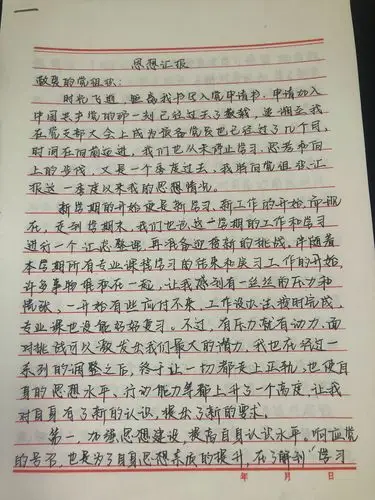 思想汇报
敬爱的党组织：
时光飞逝，距离我书写入党申请书，申请加入
中国共产党的那一刻已经过去了数载，距离我
在党支部大会上成为预备党员也已经过了几个月，
时间在向前迈进，我们也从未停止学习、思考和向
上的步伐，又是一个季度过去，我将向党组织汇
报这一季度以来我的思想情况。
新学期的开始便是新学习、新工作的开始，而现
在，走到学期末，我们也也这一学期的工作和学习
进行一个 整理 再准备迎接新的挑战。伴随着
本学期所有专业课程学习的结束和实习工作的开始，
许多事物堆积在一起，让我感到有一丝丝的压力和
慌张，一开始有些应付不来，工作没办法按时完成，
专业课也没能好好复习。不过，有压力就有动力，面
对挑战可以激发出我们最大的潜力，我也在经过一
系列的调整之后，终于让一切都走上正轨，也使自
身的思想水平、行动能力等都上升了一个高度，让我
对自身有了新的认识，提出了新的要求。
第一，加强思想建设，提高自身认识水平。响应党
的号召，也是为了自身思想素质的提升，在了解到“学习
年 月 日